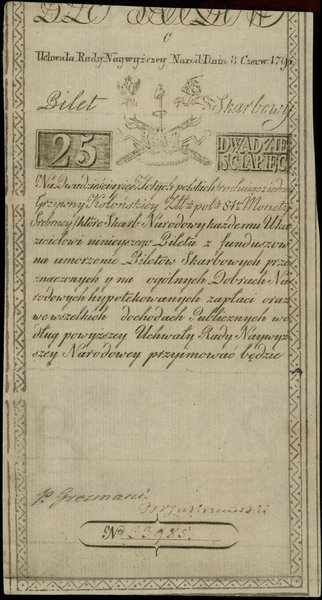 C
Uchwała Rady Naywyższey Narod: Dnia 8 Czerw. 1794
Bilet Skarbowy
25 DWADZIE
ŚCIA PIĘĆ
Na Dwadzieścia pięć Złotych polskich rachuiąc z iedney
Grzywny Kolońskiey Zł: pols: 84½ Monetą
Srebrną, które Skarb Narodowy każdemu Oka
zicielowi ninieyszego Biletu z funduszów
na umorzenie Biletów Skarbowych prze
znaczonych y na ogólnych Dobrach Na
rodowych hypotekowanych zapłaci oraz
we wszelkich dochodach Publicznych we
dług powyższey Uchwały Rady Naywyż
szey Narodowey przyjmować będzie
P. Grozmani
No 33985.